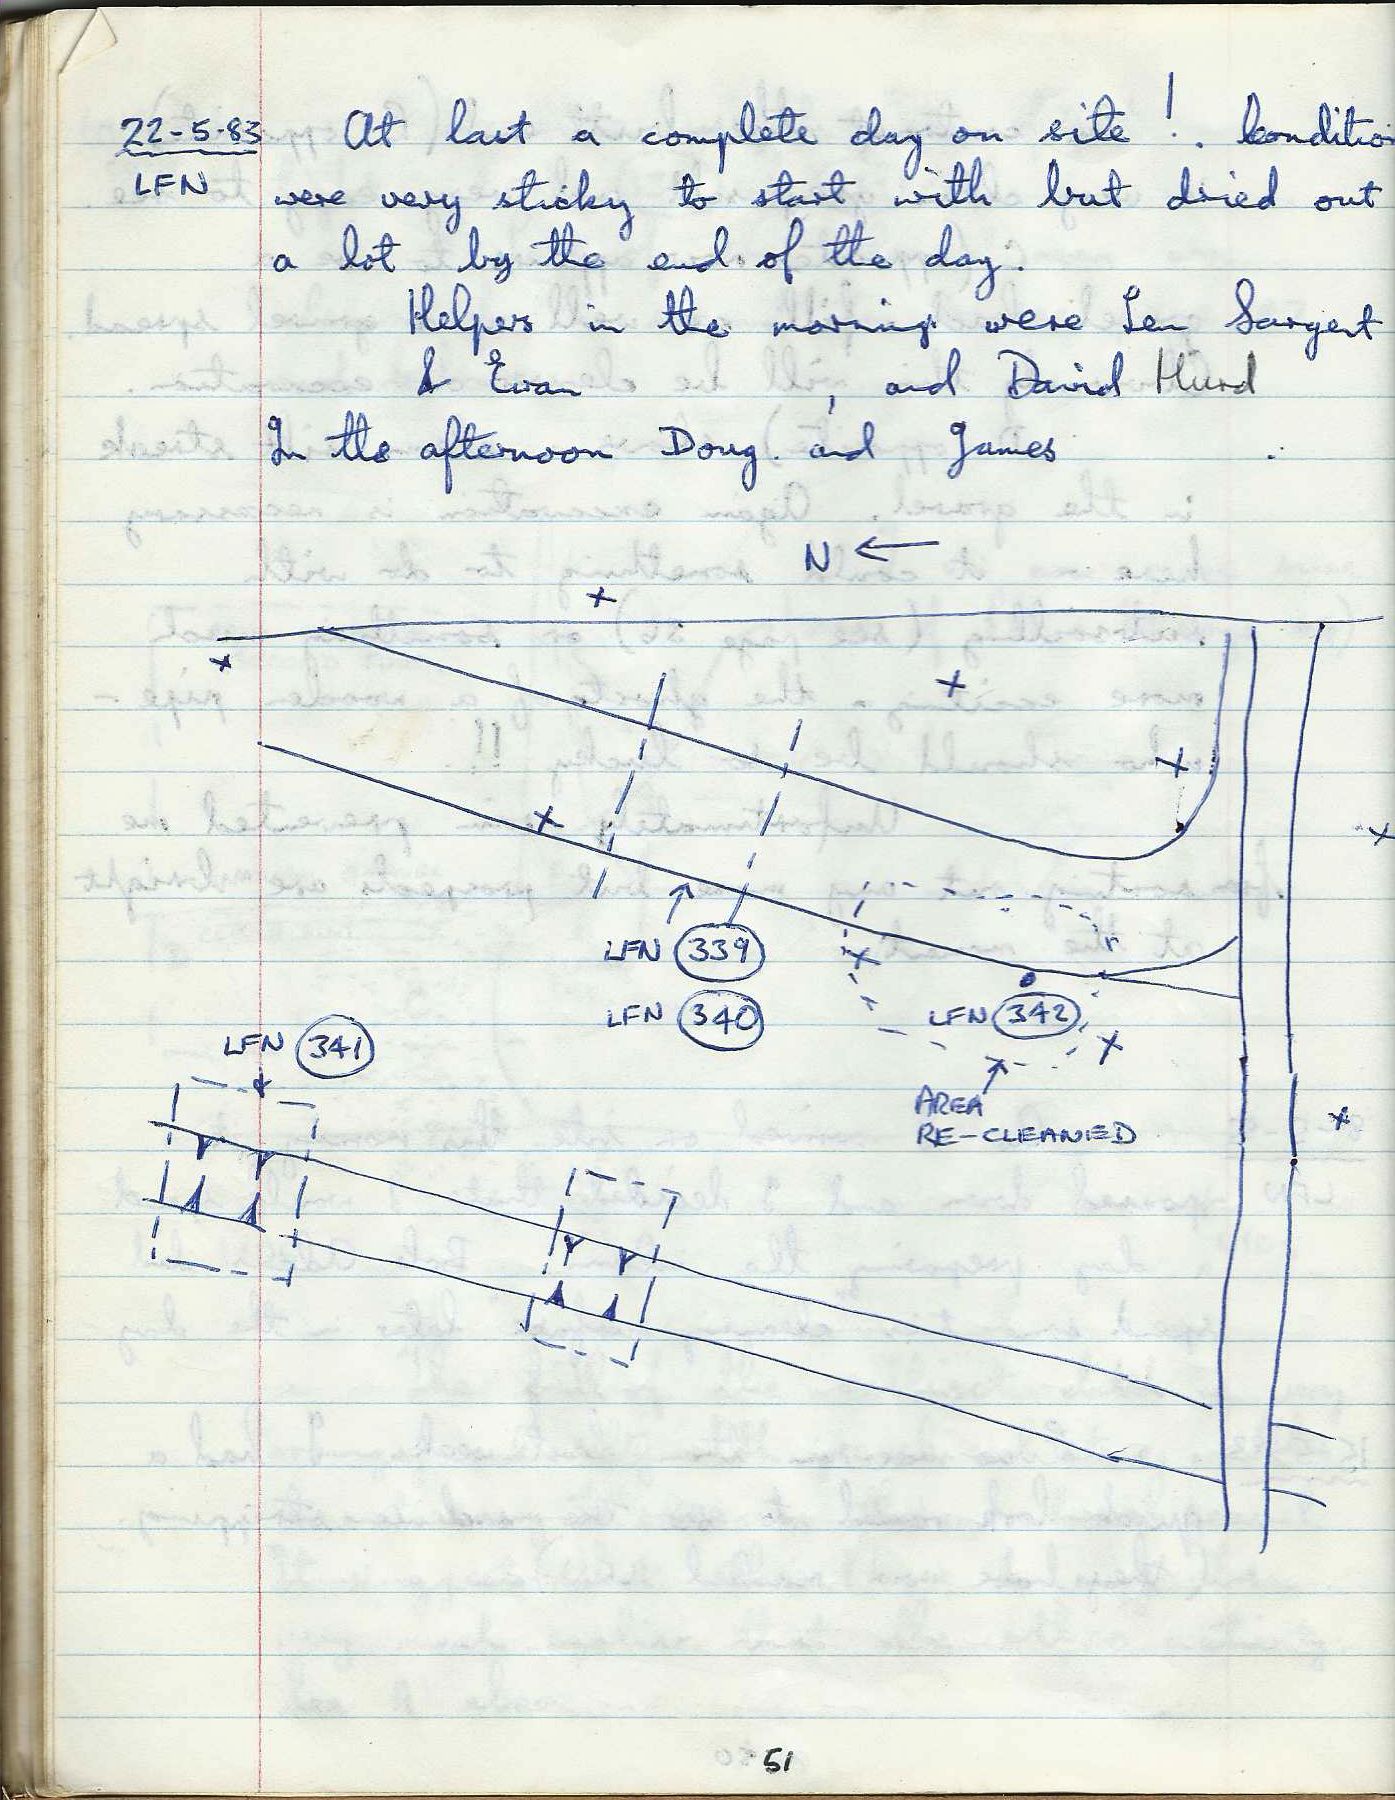 22-5-83 At last a complete day on site! Conditio
LFN were very sticky to start with but dried out
a lot by the end of the day.
Helpers in the morning were Len Sargent
& Ewan , and David Hurd
In the afternoon Doug. and James .
N
LFN 339
LFN 340
LFN 342
LFN 341
AREA
RE-CLEANED
51